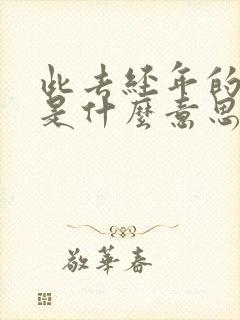 此去经年的
是什麼意思
敬華春